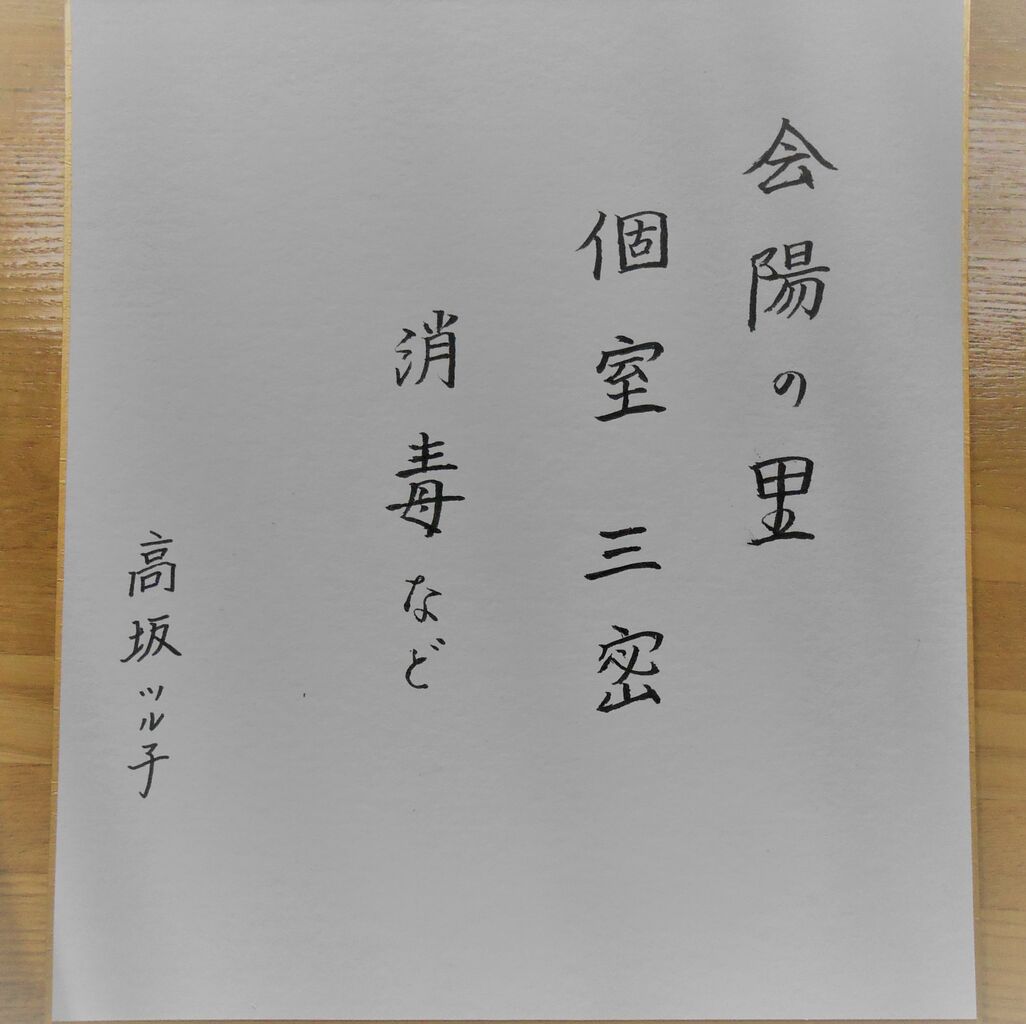 会陽の里
個室三密
消毒など
高坂ツル子